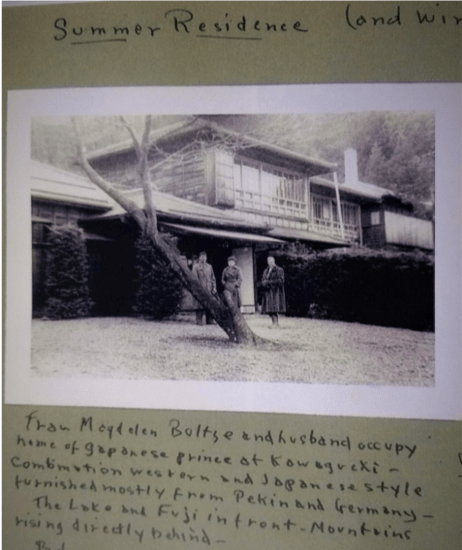 Summer Residence (and Win
Frau Magdalen Boltze and husband occupy
home of Japanese prince at Kawaguchi –
Combination western and Japanese style
furnished mostly from Pekin and Germany –
The Lake and Fuji in front – Mountains
rising directly behind –